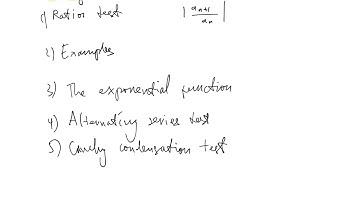 1) Ratio test |aₙ₊₁/aₙ|
2) Examples
3) The exponential function
4) Alternating series test
5) Cauchy condensation test